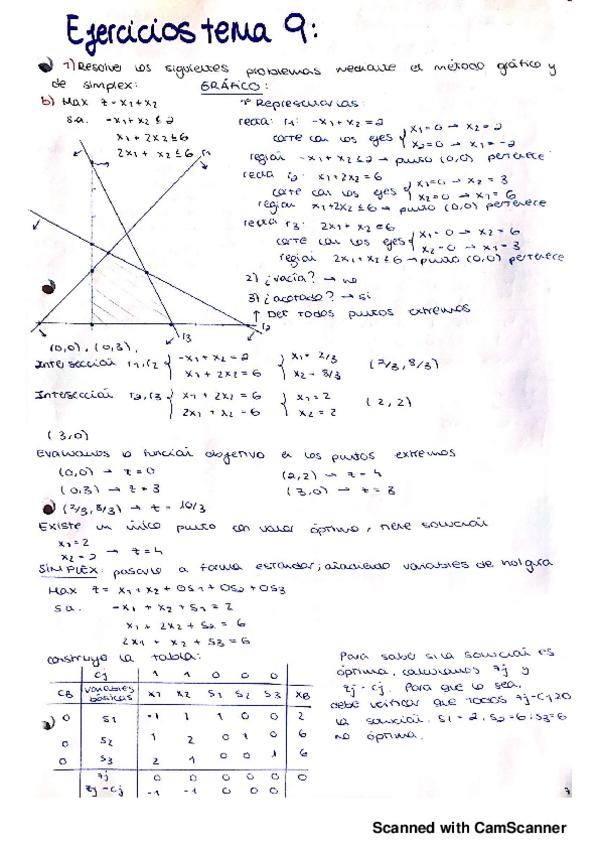 Ejercicios tema 9:
1) Resolver los siguientes problemas mediante el método gráfico y
de simplex: GRÁFICO:
b) Max z = x1 + x2
s.a. -x1 + x2 ≤ 2
x1 + 2x2 ≤ 6
2x1 + x2 ≤ 6
Representarlas:
recta: r1: -x1 + x2 = 2
corte con los ejes { x1=0 → x2 = 2
x2=0 → x1 = -2
región -x1 + x2 ≤ 2 → punto (0,0) pertenece
recta r2: x1 + 2x2 = 6
corte con los ejes { x1=0 → x2 = 3
x2=0 → x1 = 6
región x1+2x2 ≤ 6 → punto (0,0) pertenece
recta r3: 2x1 + x2 = 6
corte con los ejes { x1=0 → x2 = 6
x2=0 → x1 = 3
región 2x1 + x2 ≤ 6 → punto (0,0) pertenece
2) ¿vacía? → no
3) ¿acotado? → si
↑ Det todos puntos extremos
r1
r3
r2
(0,0), (0,3),
Intersección r1,r2 { -x1 + x2 = 2 { x1 = 2/3 (2/3, 8/3)
x1 + 2x2 = 6 x2 = 8/3
Intersección r2,r3 { x1 + 2x2 = 6 { x1 = 2 (2,2)
2x1 + x2 = 6 x2 = 2
(3,0)
Evaluamos la función objetivo en los puntos extremos
(0,0) → z = 0 (2,2) → z = 4
(0,3) → z = 3 (3,0) → z = 3
(2/3, 8/3) → z = 10/3
Existe un único punto con valor óptimo, tiene solución
x1 = 2
x2 = 2 → z = 4
SIMPLEX: pasarlo a forma estándar; añadiendo variables de holgura
Max z = x1 + x2 + 0s1 + 0s2 + 0s3
s.a. -x1 + x2 + s1 = 2
x1 + 2x2 + s2 = 6
2x1 + x2 + s3 = 6
construyo la tabla:
cj 1 1 0 0 0
CB variables básicas x1 x2 s1 s2 s3 XB
0 s1 -1 1 1 0 0 2
0 s2 1 2 0 1 0 6
0 s3 2 1 0 0 1 6
zj 0 0 0 0 0 0
zj - cj -1 -1 0 0 0
Para saber si la solución es
óptima, calculamos zj y
zj - cj. Para que lo sea,
debe verificar que todos zj - cj ≥ 0
la solución. s1 = 2, s2 = 6; s3 = 6
no óptima.
Scanned with CamScanner